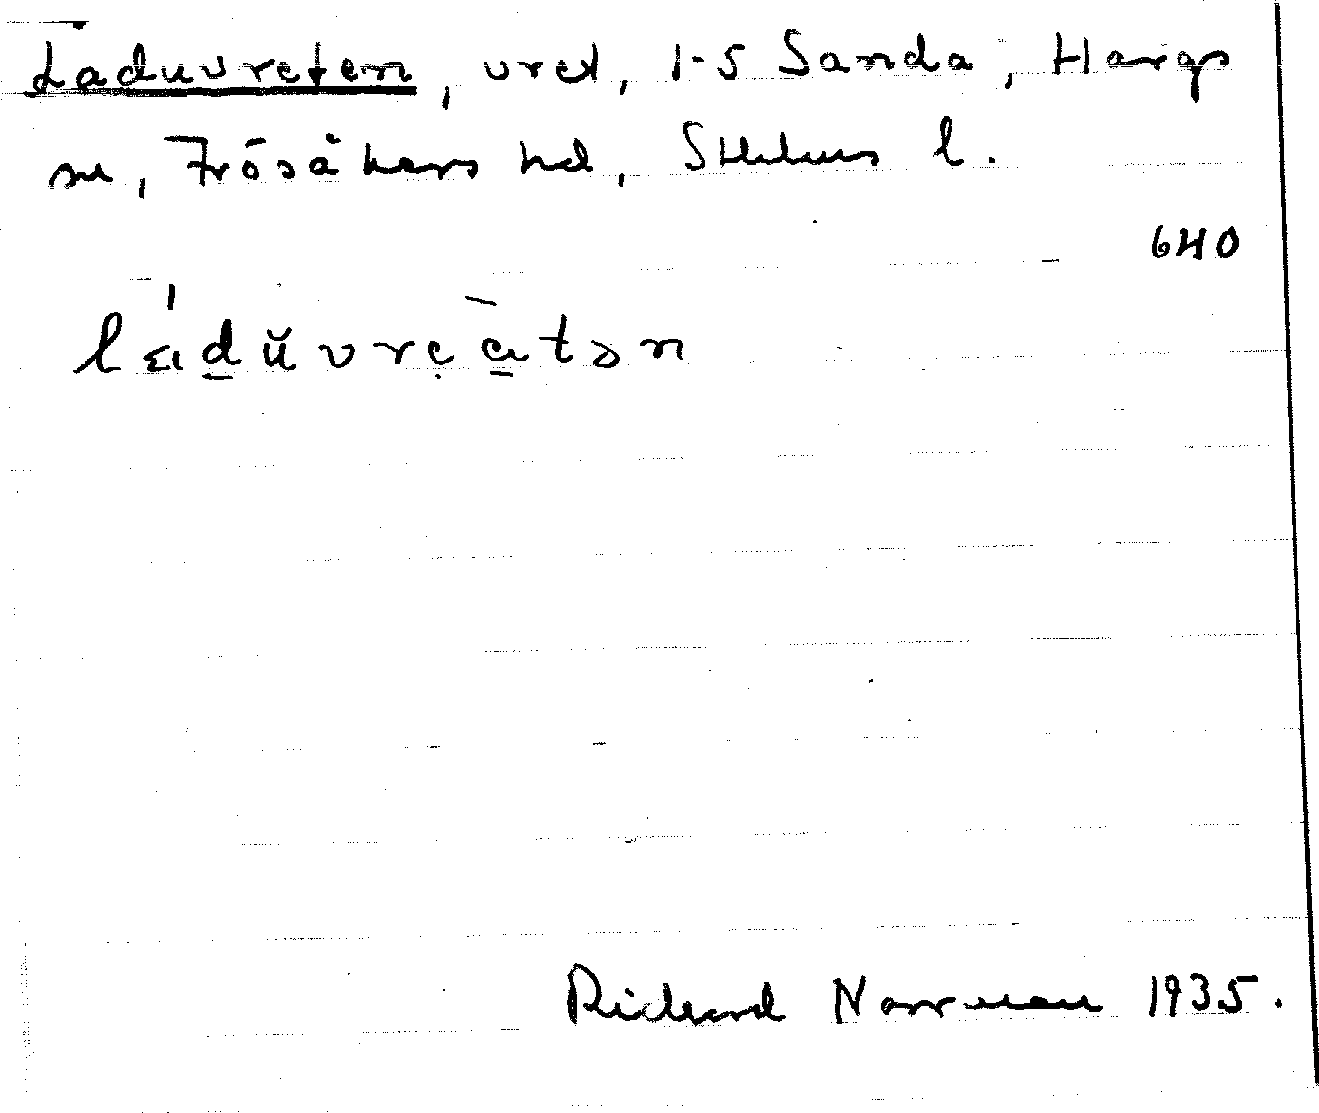 Laduvreten, vret, 1-5 Sanda, Hargs
sn, Frösåkers hd, Sthlms l.
640
Rickard Norrman 1935.